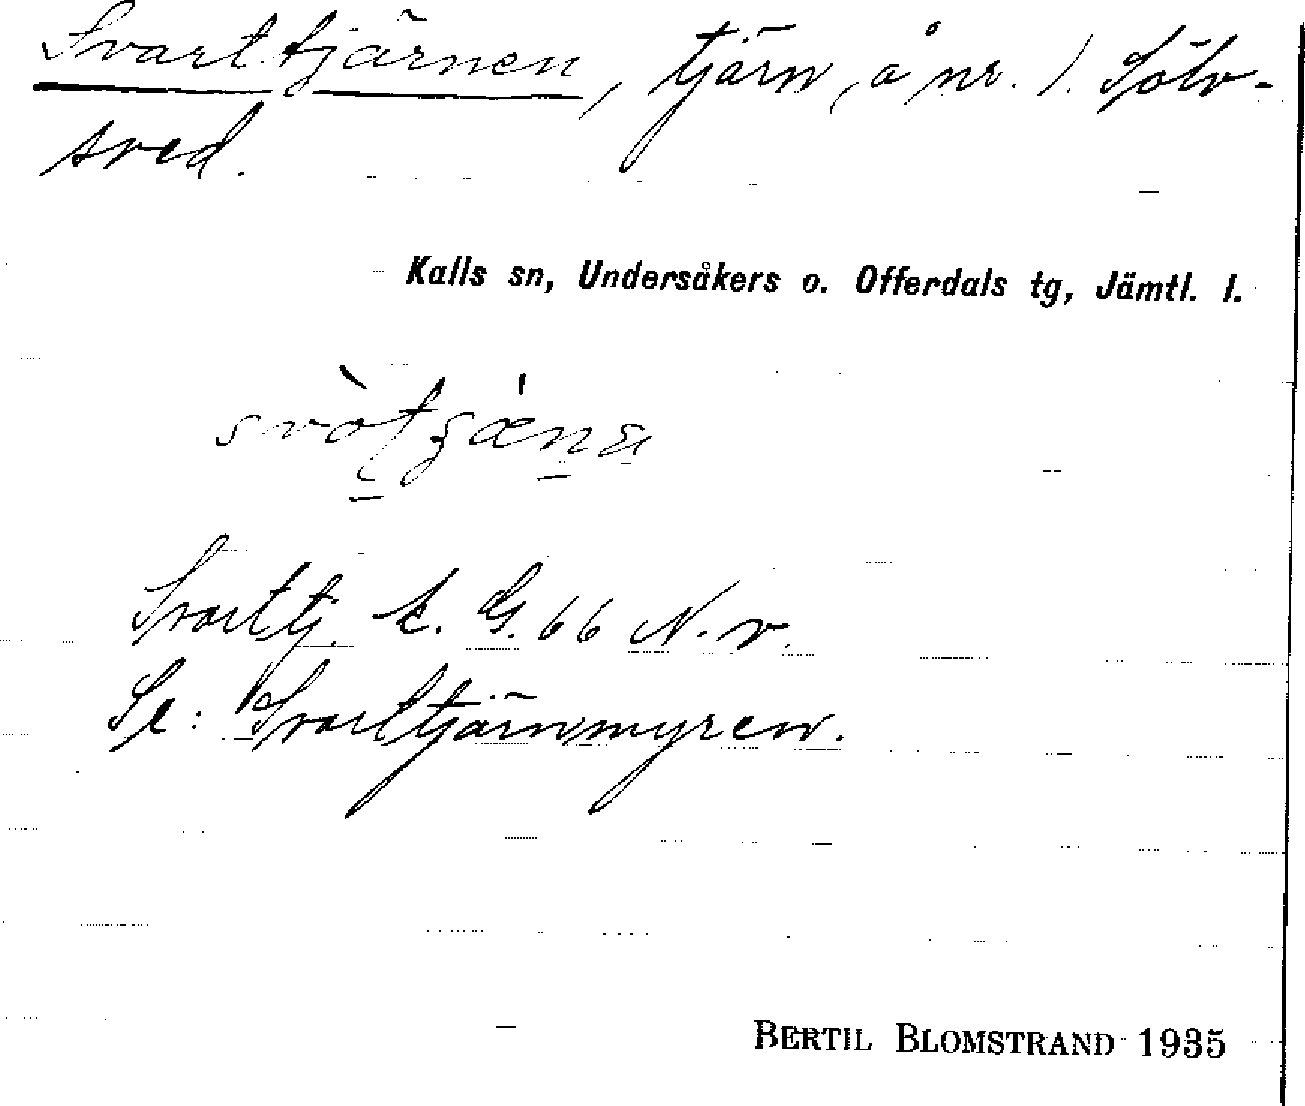 Svarttjärnen, tjärn, å nr. 1. Sölv-
sved.
Kalls sn, Undersåkers o. Offerdals tg, Jämtl. l.
Svarttj. k. G. 66 N. v.
Se: Svarttjärnmyren.
BERTIL BLOMSTRAND 1935